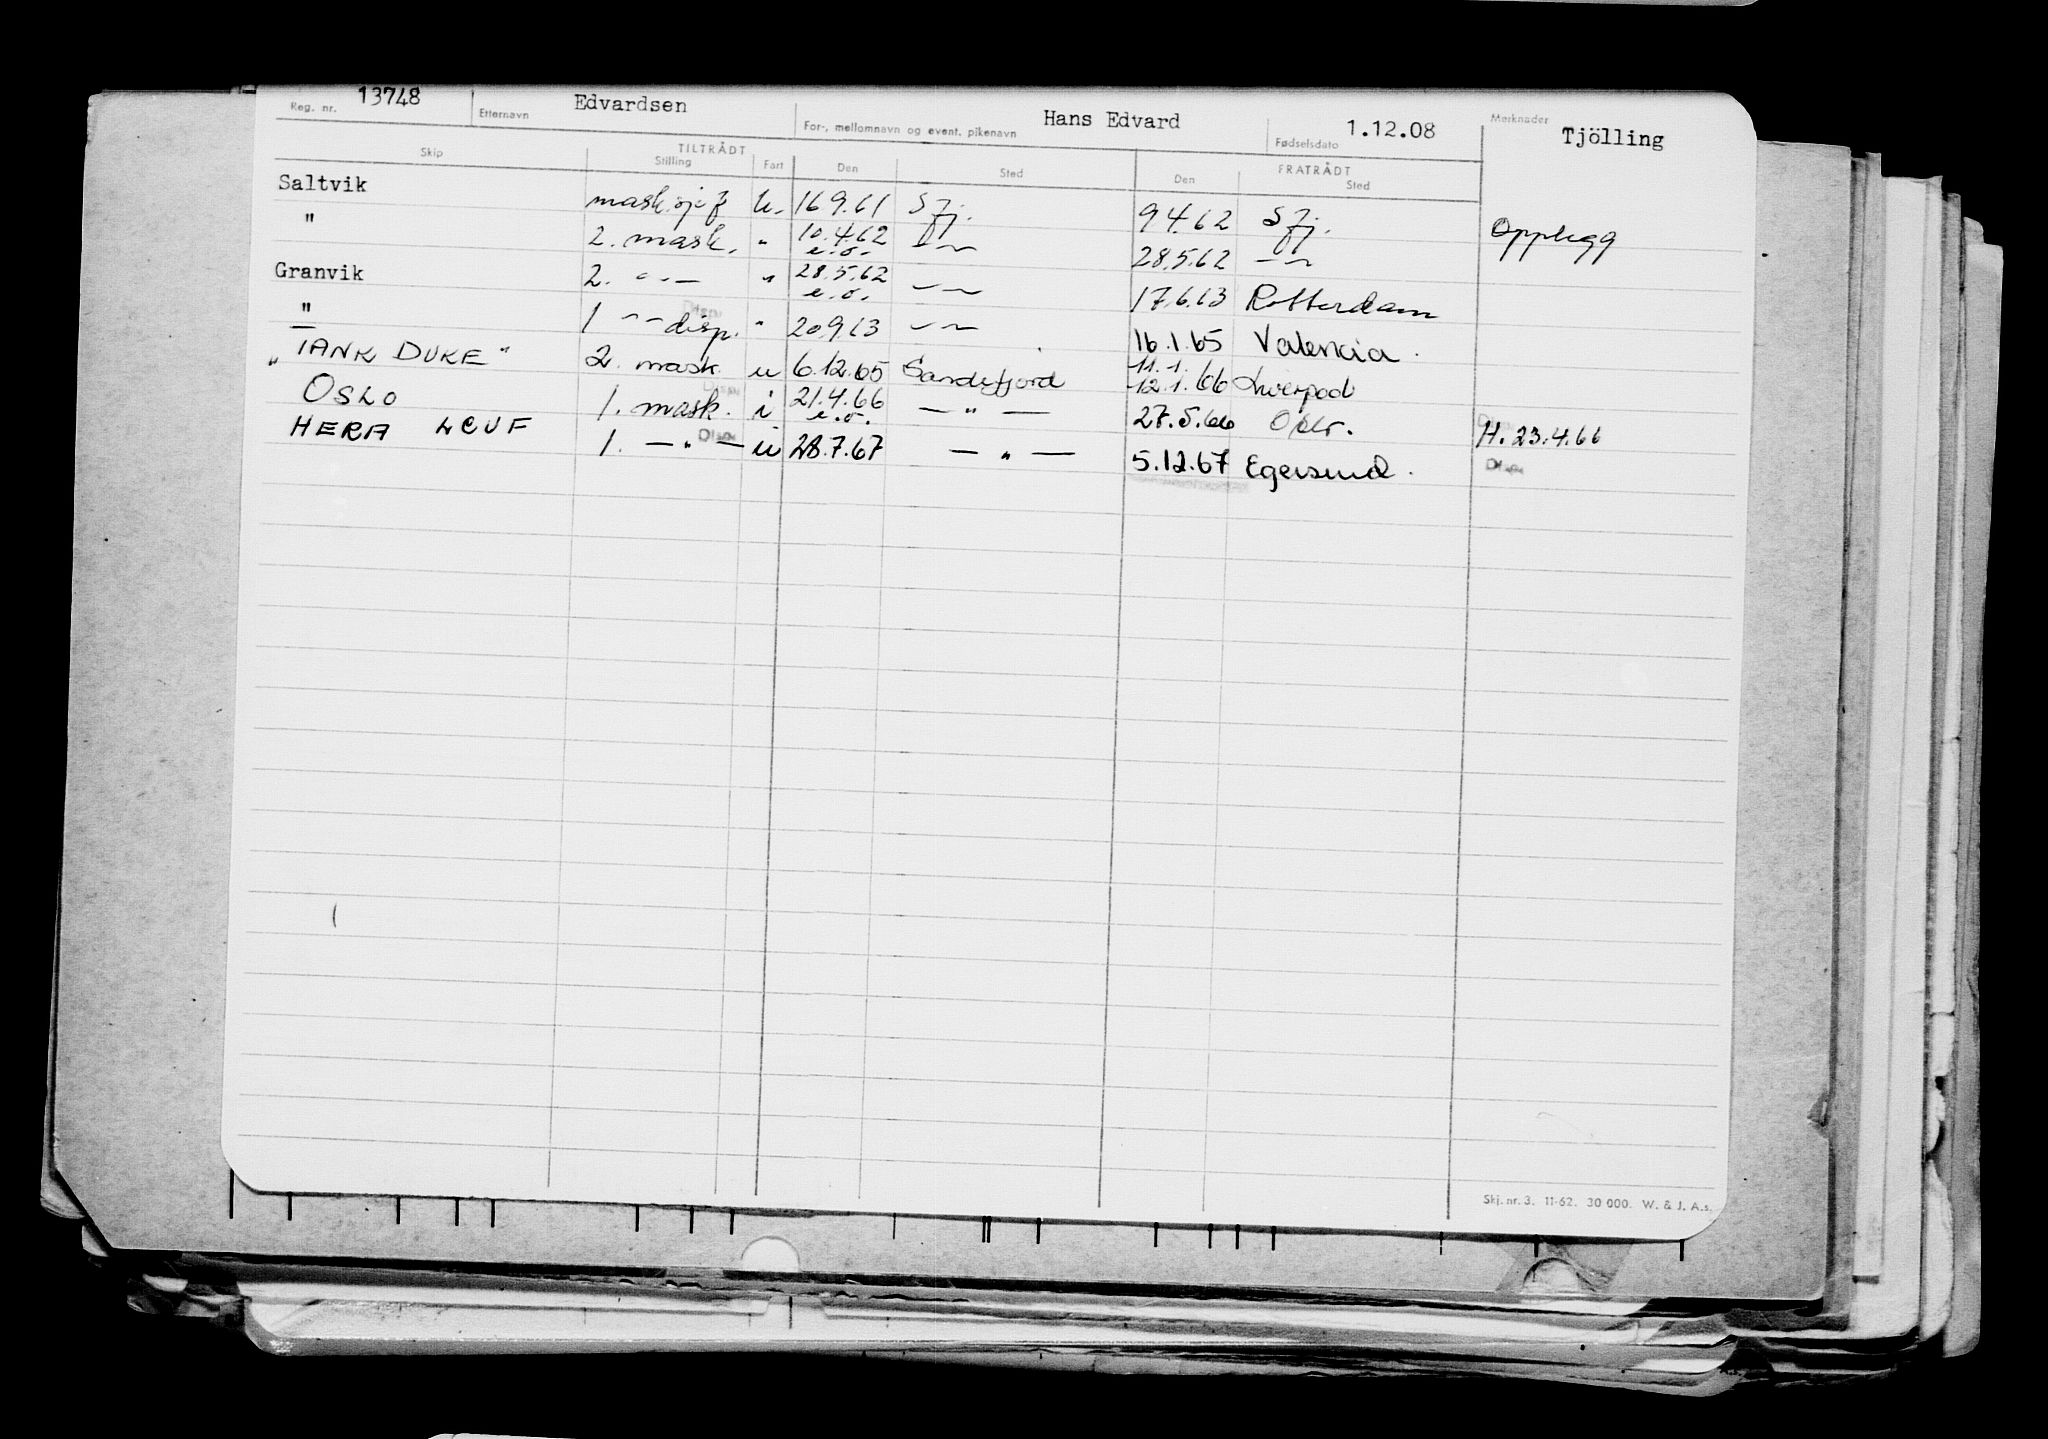 Reg. nr. 13748 Etternavn Edvardsen For-, mellomnavn og event. pikenavn Hans Edvard Fødselsdato 1.12.08 Merknader Tjölling
TILTRÅDT FRATRÅDT
Skip Stilling Fart Den Sted Den Sted
Saltvik mask.sjef u. 16.9.61 Sfj. 9.4.62 Sfj. Opplegg
" 2. mask. " 10.4.62 e.o. — " — 28.5.62 — " —
Granvik 2. — " — " 28.5.62 e.o. — " — 17.6.63 Rotterdam
" 1 — " — disp. " 20.9.63 — " — 16.1.65 Valencia.
"TANK DUKE" 2. mask u 6.12.65 Sandefjord 11.1. 12.1.66 Liverpool
OSLO 1. mask. i 21.4.66 e.o. — " — 27.5.66 H. 23.4.66
HERA 1. — " — Disp. u 28.7.67 — " — 5.12.67 Egersund. Disp.
Skj. nr. 3. 11-62. 30 000. W. & J. A.s.